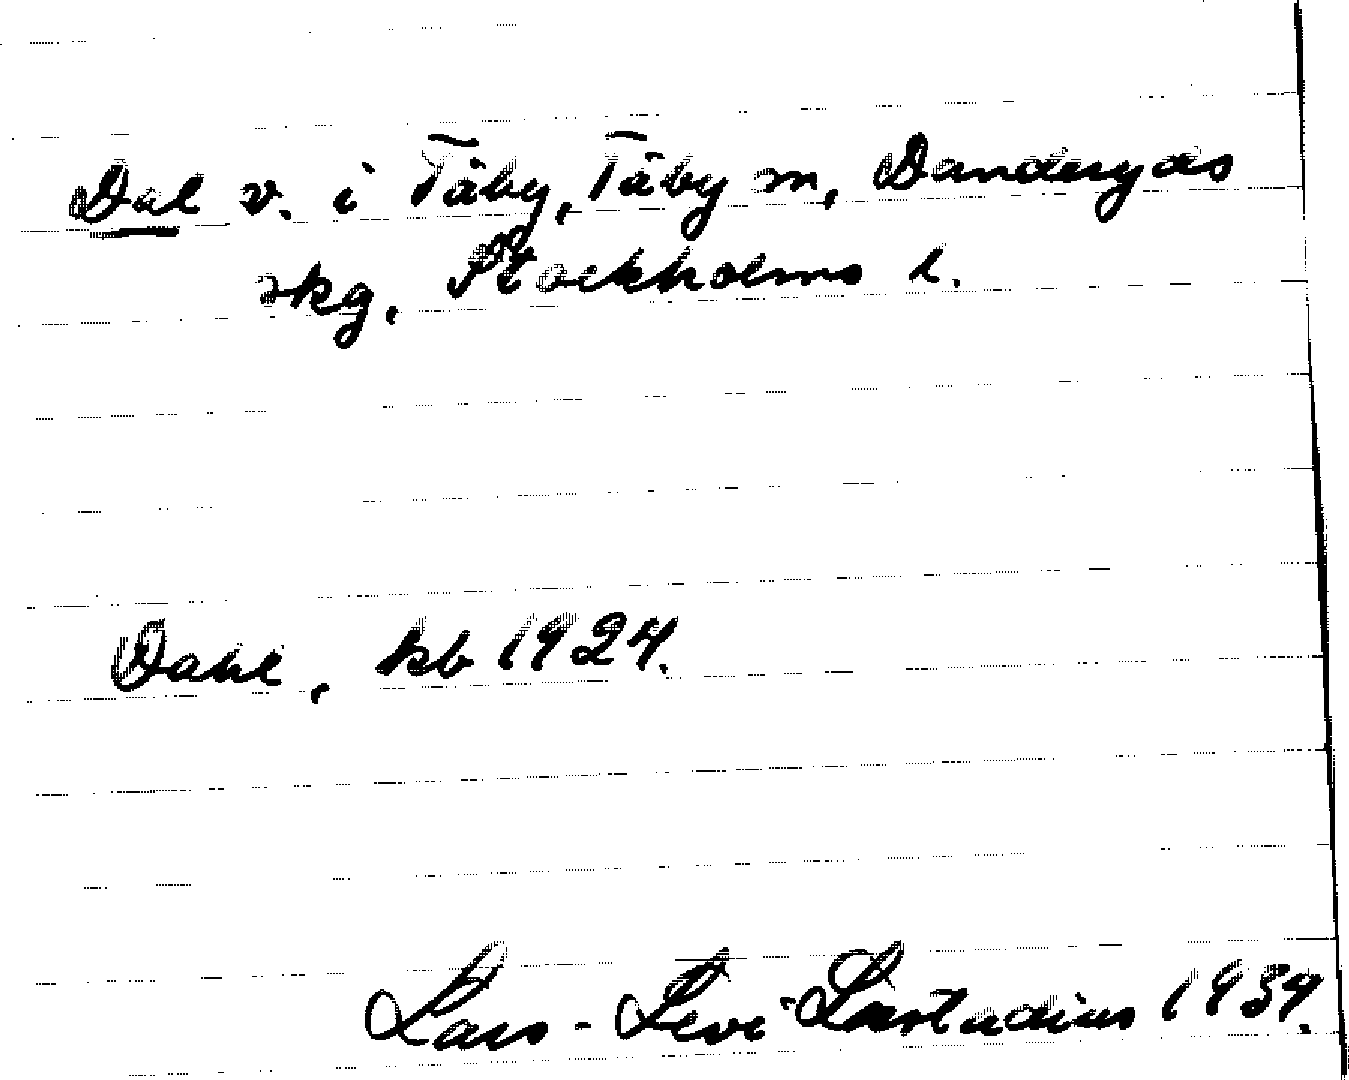 Dal v. i Täby, Täby sn, Danderyds
skg, Stockholms l.
Dahl, kb 1924.
Lars-Levi Læstadius 1934.